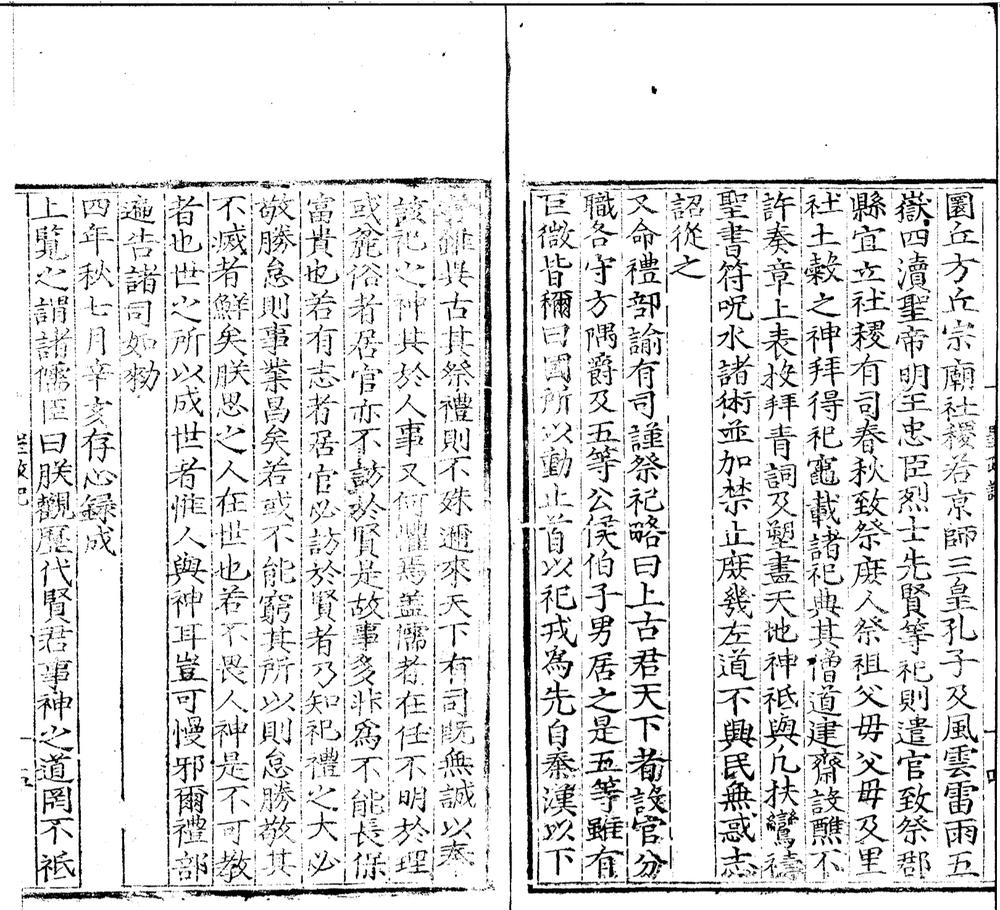 圜丘方丘宗廟社稷若京師三皇孔子及風雲雷雨五
嶽四瀆聖帝明王忠臣烈士先賢等祀則遣官致祭郡
縣宜立社稷有司春秋致祭庶人祭祖父母父母及里
社土榖之神拜得祀竈載諸祀典其僧道建齋設醮不
許奏章上表投拜青詞及塑畫天地神祇與凡扶鸞禱
聖書符呪水諸術並加禁止庶幾左道不興民無惑志
詔從之
又命禮部諭有司謹祭祀略曰上古君天下者設官分
職各守方隅爵及五等公侯伯子男居之是五等雖有
巨微皆稱曰國所以動止首以祀戎為先自秦漢以下
雖異古其祭禮則不殊邇來天下有司既無誠以奉
該祀之神其於人事又何懼焉盖儒者在任不明於理
或麄俗者居官亦不訪於賢是故事多非為不能長保
富貴也若有志者居官必訪於賢者乃知祀禮之大必
敬勝怠則事業昌矣若或不能窮其所以則怠勝敬其
不滅者鮮矣朕思之人在世也若不畏人神是不可教
者也世之所以成世者惟人與神耳豈可慢邪爾禮部
遍告諸司如勑
四年秋七月辛亥存心録成
上覽之謂諸儒臣曰朕觀歷代賢君事神之道罔不祗